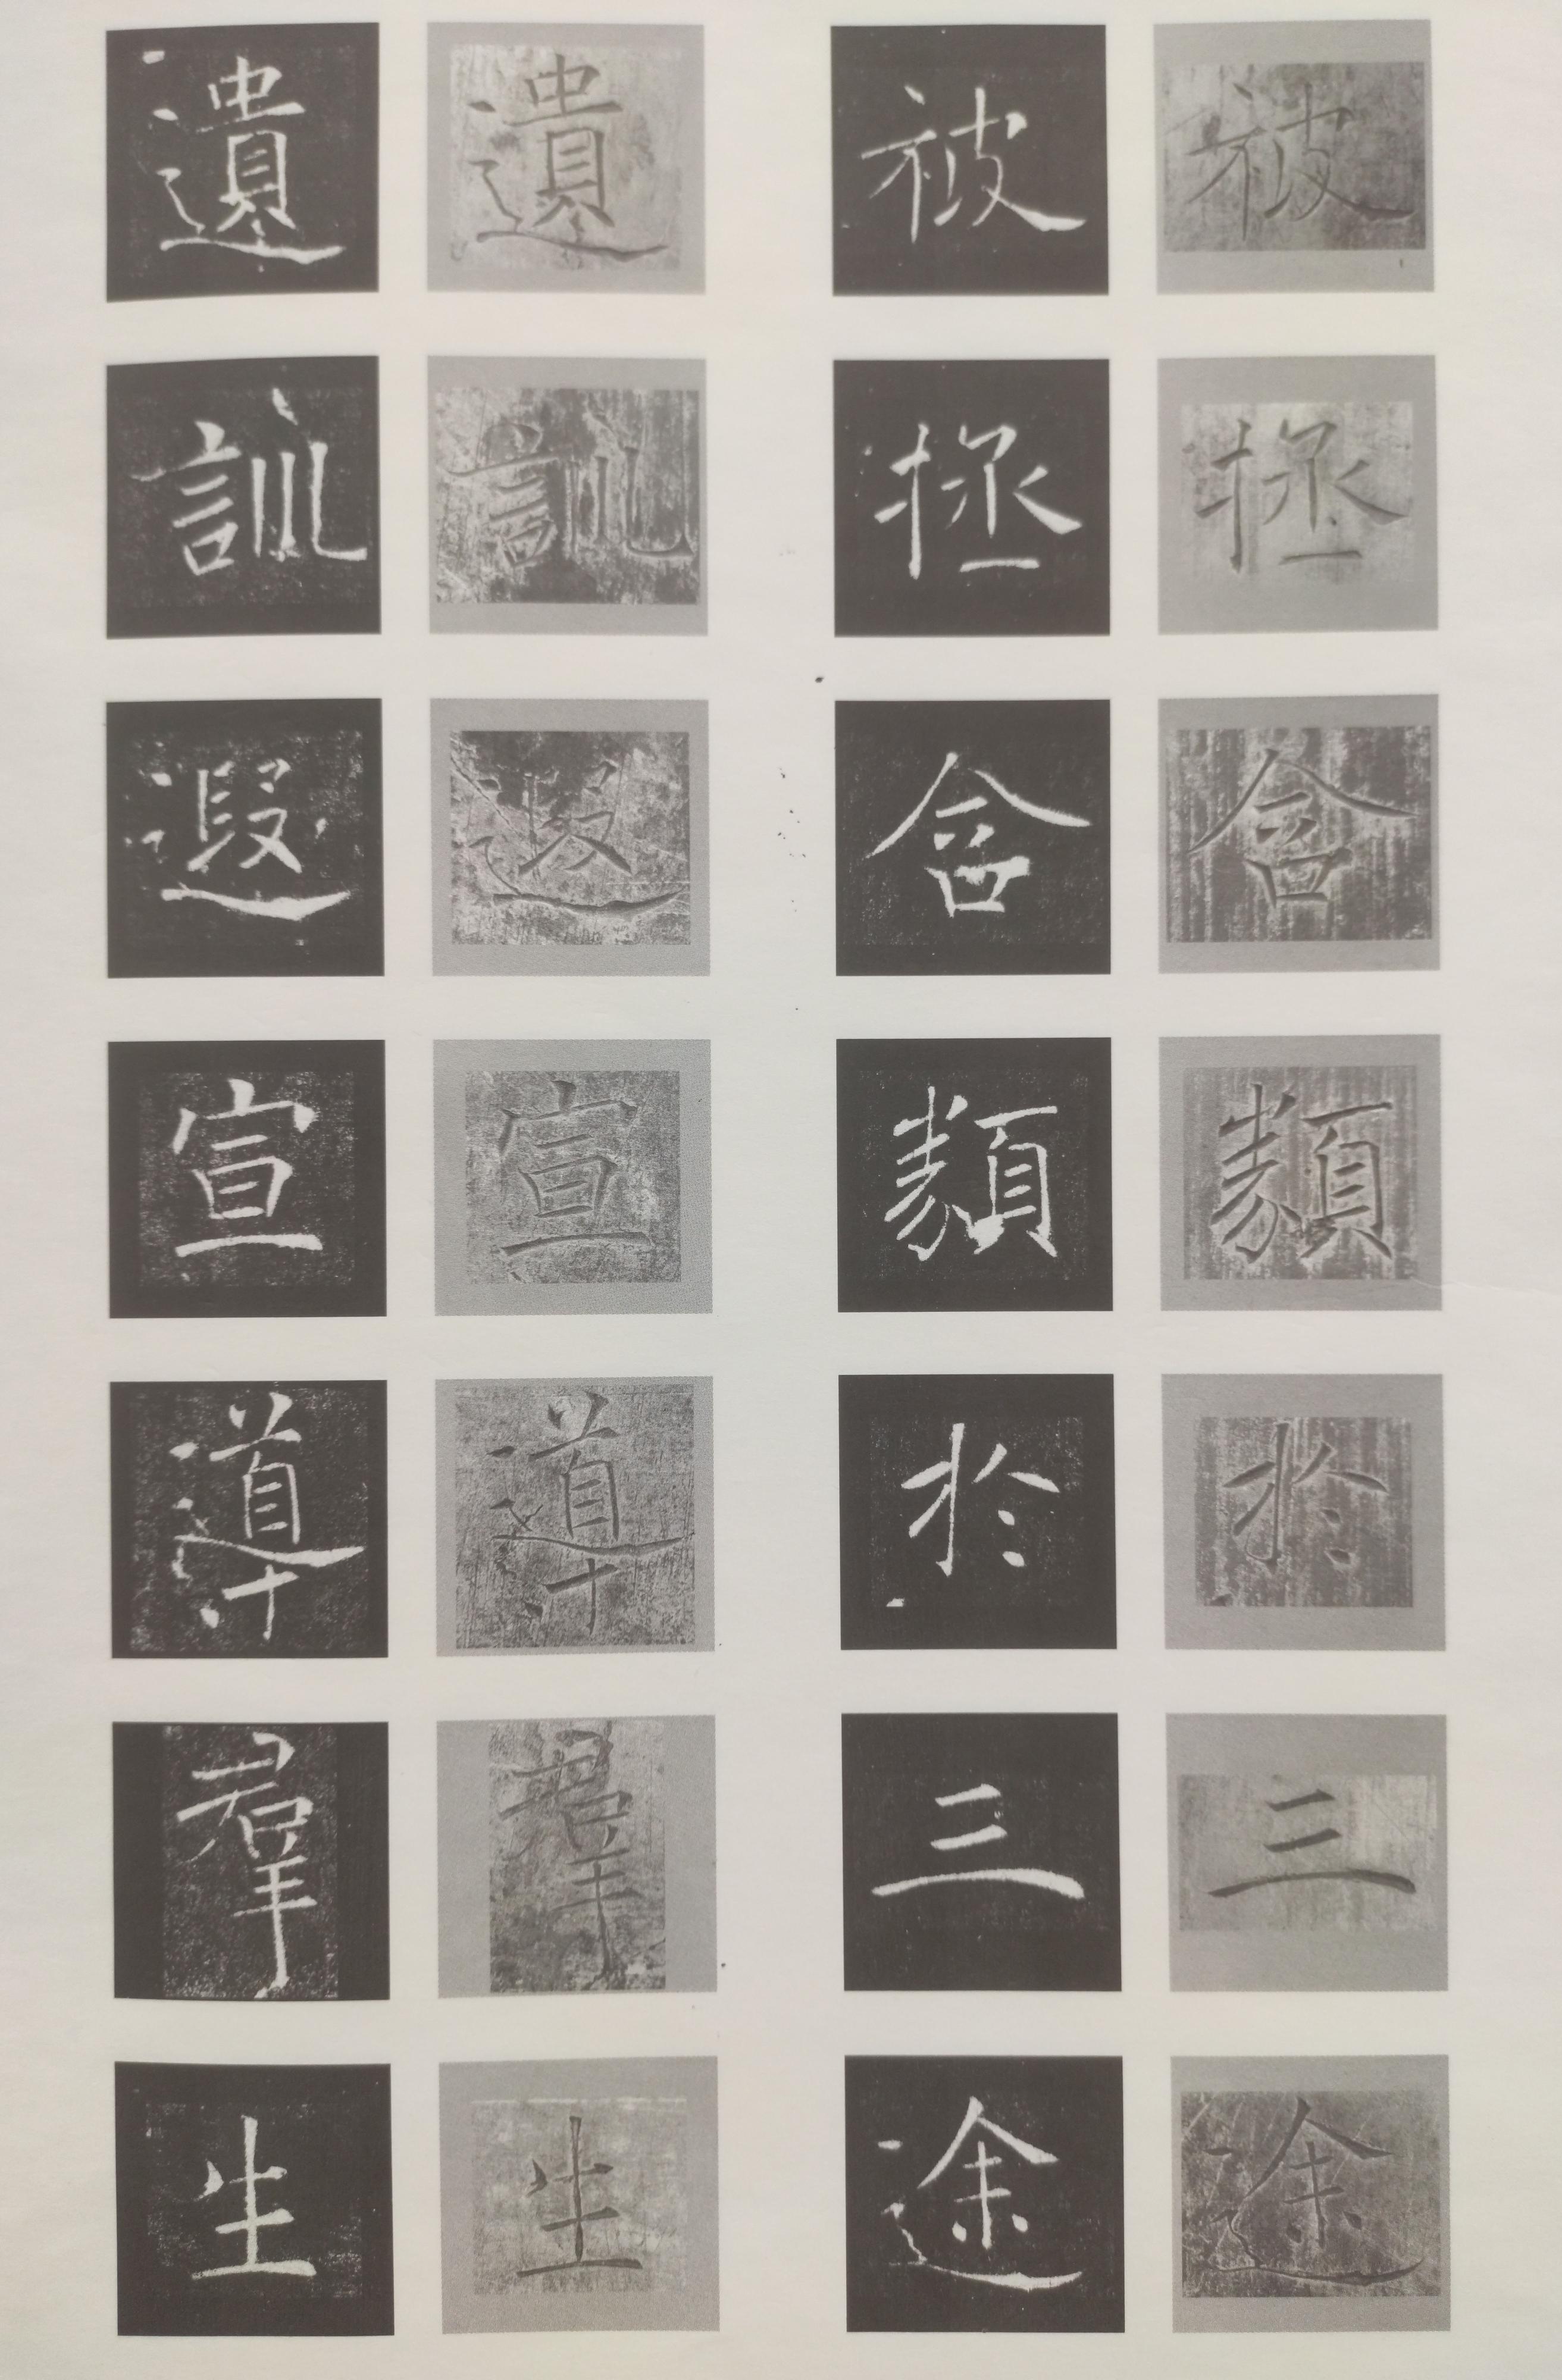 被拯含類於三途
被拯含類於三途
遺訓遐宣導羣生
遺訓遐宣導羣生